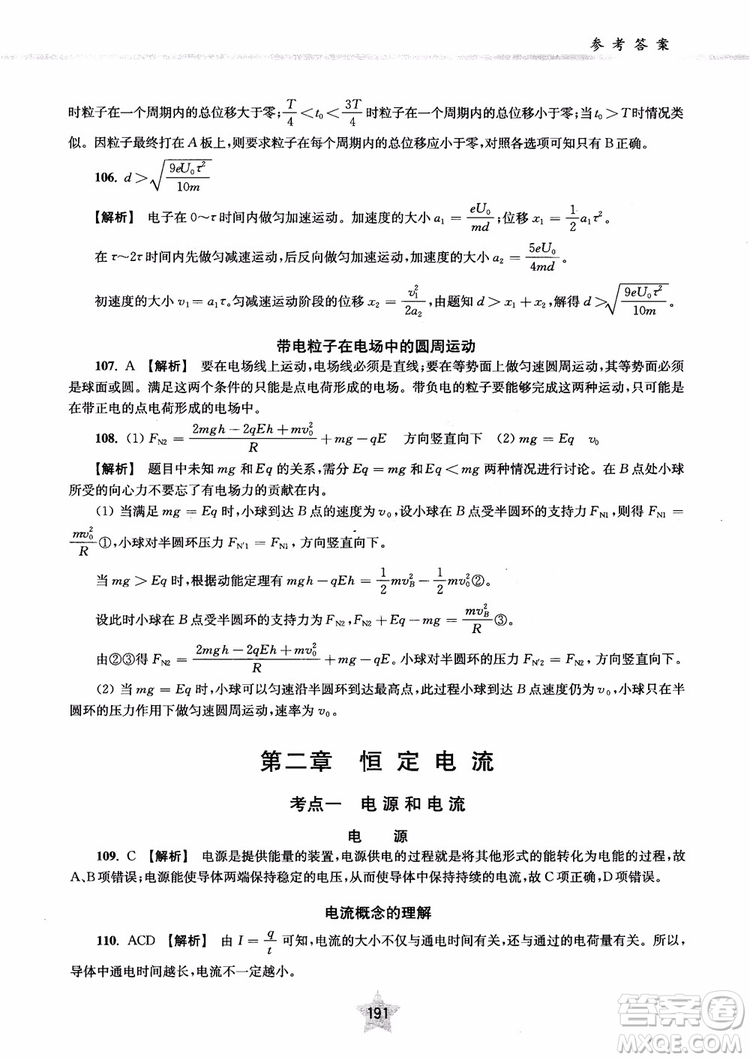 参考答案
时粒子在一个周期内的总位移大于零;T/4<t₀<3T/4时粒子在一个周期内的总位移小于零;当t₀>T时情况类
似。因粒子最终打在A板上,则要求粒子在每个周期内的总位移应小于零,对照各选项可知只有B正确。
106. d>√(9eU₀τ²/10m)
【解析】 电子在0~τ时间内做匀加速运动。加速度的大小a₁=eU₀/md;位移x₁=1/2 a₁τ²。
在τ~2τ时间内先做匀减速运动,后反向做匀加速运动,加速度的大小a₂=5eU₀/4md。
初速度的大小v₁=a₁τ。匀减速运动阶段的位移x₂=v₁²/2a₂,由题知d>x₁+x₂,解得d>√(9eU₀τ²/10m)。
带电粒子在电场中的圆周运动
107. A 【解析】 要在电场线上运动,电场线必须是直线;要在等势面上能做匀速圆周运动,其等势面必须
是球面或圆。满足这两个条件的只能是点电荷形成的电场。带负电的粒子要能够完成这两种运动,必须是
在带正电的点电荷形成的电场中。
108. (1) F_N2=(2mgh-2qEh+mv₀²)/R+mg-qE 方向竖直向下 (2) mg=Eq v₀
【解析】 题目中未知mg和Eq的关系,需分Eq=mg和Eq<mg两种情况进行讨论。在B点处小球
所受的向心力不要忘了有电场力的贡献在内。
(1) 当满足mg=Eq时,小球到达B点的速度为v₀,设此时小球受半圆环的支持力F_N1,则得F_N1=
mv₀²/R①,小球对半圆环压力F_N'1=F_N1=mv₀²/R,方向竖直向下。
当mg>Eq时,根据动能定理有mgh-qEh=1/2 mv_B²-1/2 mv₀²②。
设此时小球在B点受半圆环的支持力为F_N2,F_N2+Eq-mg=mv_B²/R③。
由②③得F_N2=(2mgh-2qEh+mv₀²)/R+mg-qE。小球对半圆环的压力F_N'2=F_N2,方向竖直向下。
(2) 当mg=Eq时,小球可以匀速沿半圆环到达最高点,此过程小球到达B点速度仍为v₀,小球只在半
圆环的压力作用下做匀速圆周运动,速率为v₀。
第二章 恒定电流
考点一 电源和电流
电 源
109. C 【解析】 电源是提供能量的装置,电源供电的过程就是将其他形式的能转化为电能的过程,故
A、B项错误;电源能使导体两端保持稳定的电压,从而使导体中保持持续的电流,故C项正确,D项错误。
电流概念的理解
110. ACD 【解析】 由I=q/t可知,电流的大小不仅与通电时间有关,还与通过的电荷量有关。如果
导体中通电时间越长,电流不一定越小。
191
答案圈
MXQE.COM